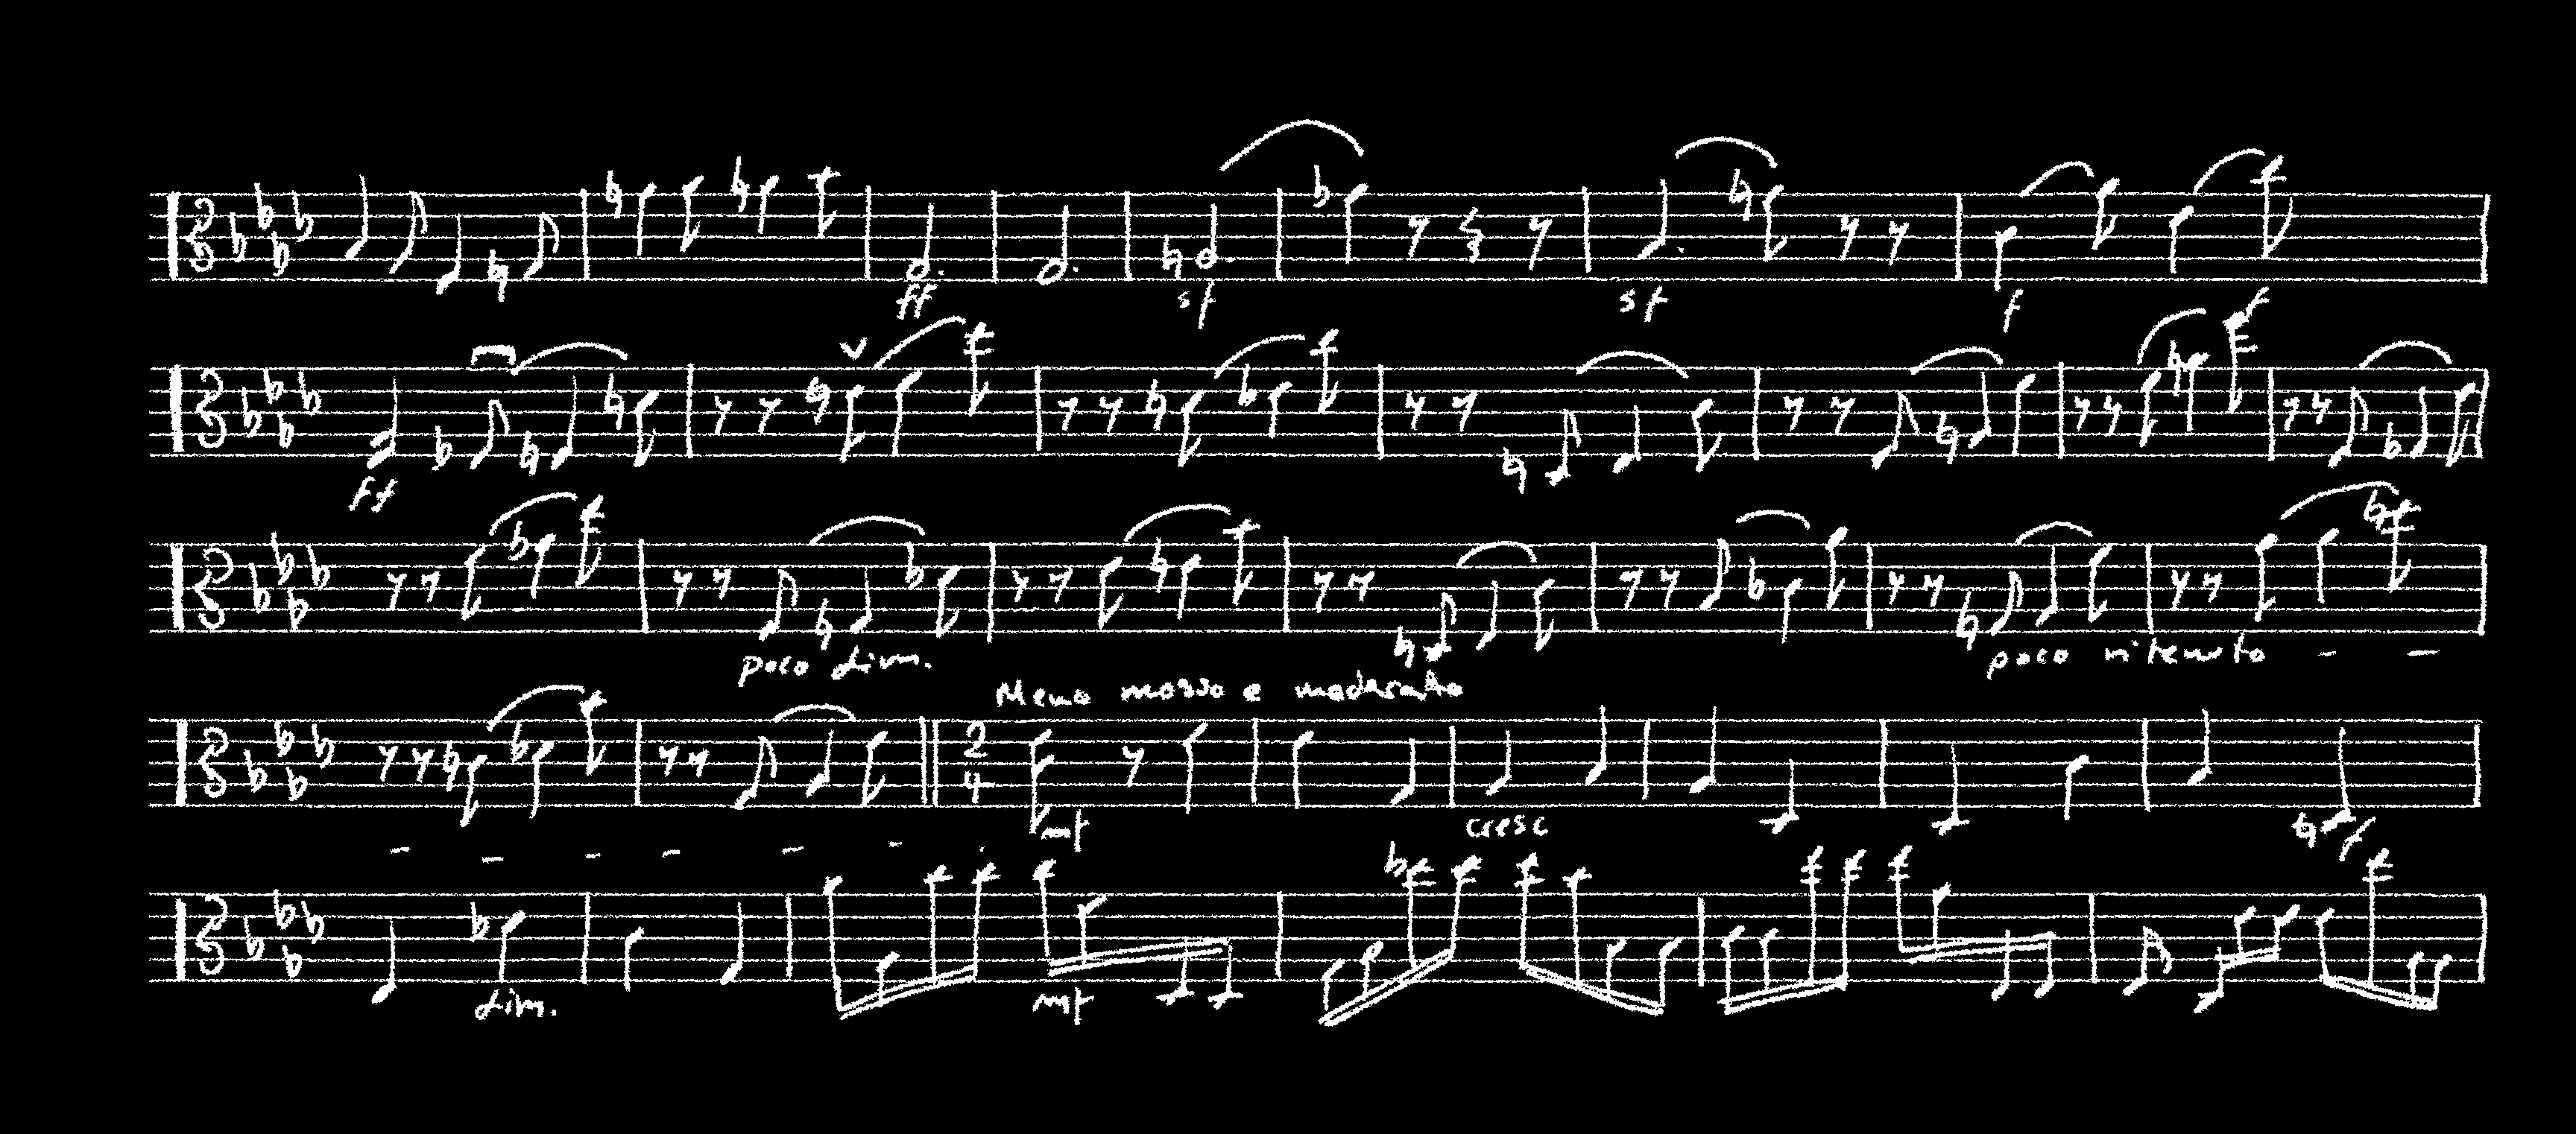 ff sf sf f
f
ff
poco dim. poco ritenuto - -
Meno mosso e moderato
2
4
mf cresc f
- - - - - - -
dim. mf